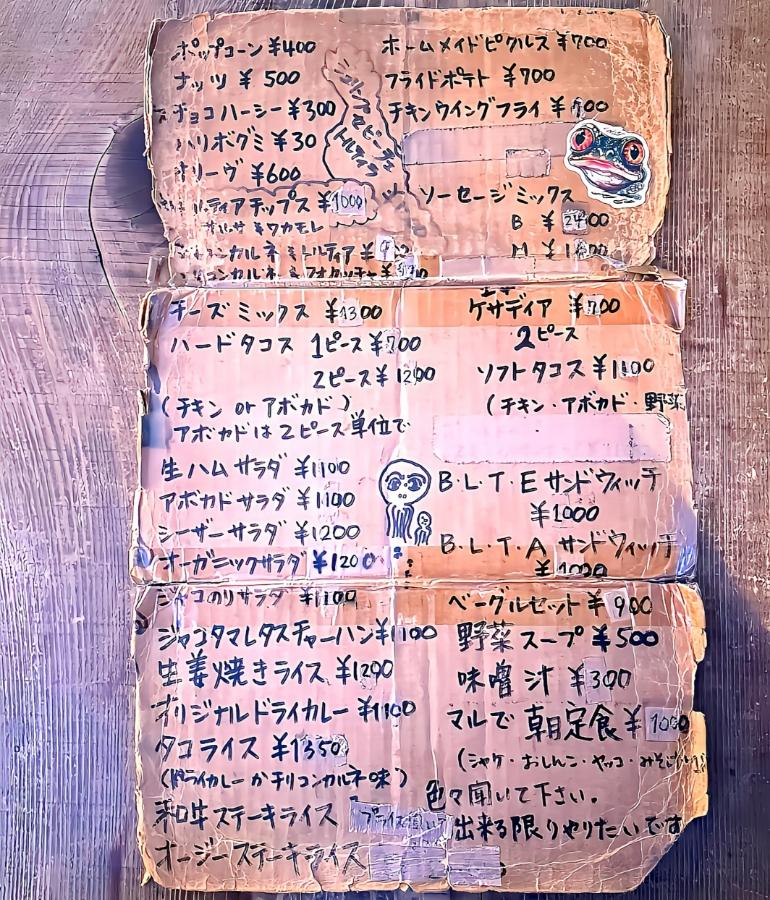 ポップコーン ¥400
ナッツ ¥500
チョコハーシー ¥300
ハリボグミ ¥30
オリーヴ ¥600
ティアチップス ¥1000
サルサ & ワカモレ
カルネ & トルティア ¥
コンカルネ & フォカッチャー ¥
トルティラ
ホームメイドピクルス ¥700
フライドポテト ¥700
チキンウイングフライ ¥
ソーセージミックス
B ¥2400
M ¥
チーズミックス ¥1300
ハードタコス 1ピース ¥700
2ピース ¥1200
(チキン or アボカド)
アボカドは2ピース単位で
生ハムサラダ ¥1100
アボカドサラダ ¥1100
シーザーサラダ ¥1200
オーガニックサラダ ¥1200
ケサディア ¥700
2ピース
ソフトタコス ¥1100
(チキン・アボカド・野菜
B・L・T・E サンドウィッチ
¥1000
B・L・T・A サンドウィッチ
¥1000
ジャコのりサラダ ¥1100
ジャコタマレタスチャーハン ¥1100
生姜焼きライス ¥1200
オリジナルドライカレー ¥1100
タコライス ¥1350
(ドライカレーかチリコンカルネ味)
和牛ステーキライス
オージーステーキライス
ベーグルセット ¥900
野菜スープ ¥500
味噌汁 ¥300
マルで朝定食 ¥1000
(シャケ・おしんこ・ヤッコ・みそ
色々聞いて下さい。
出来る限りやりたいです